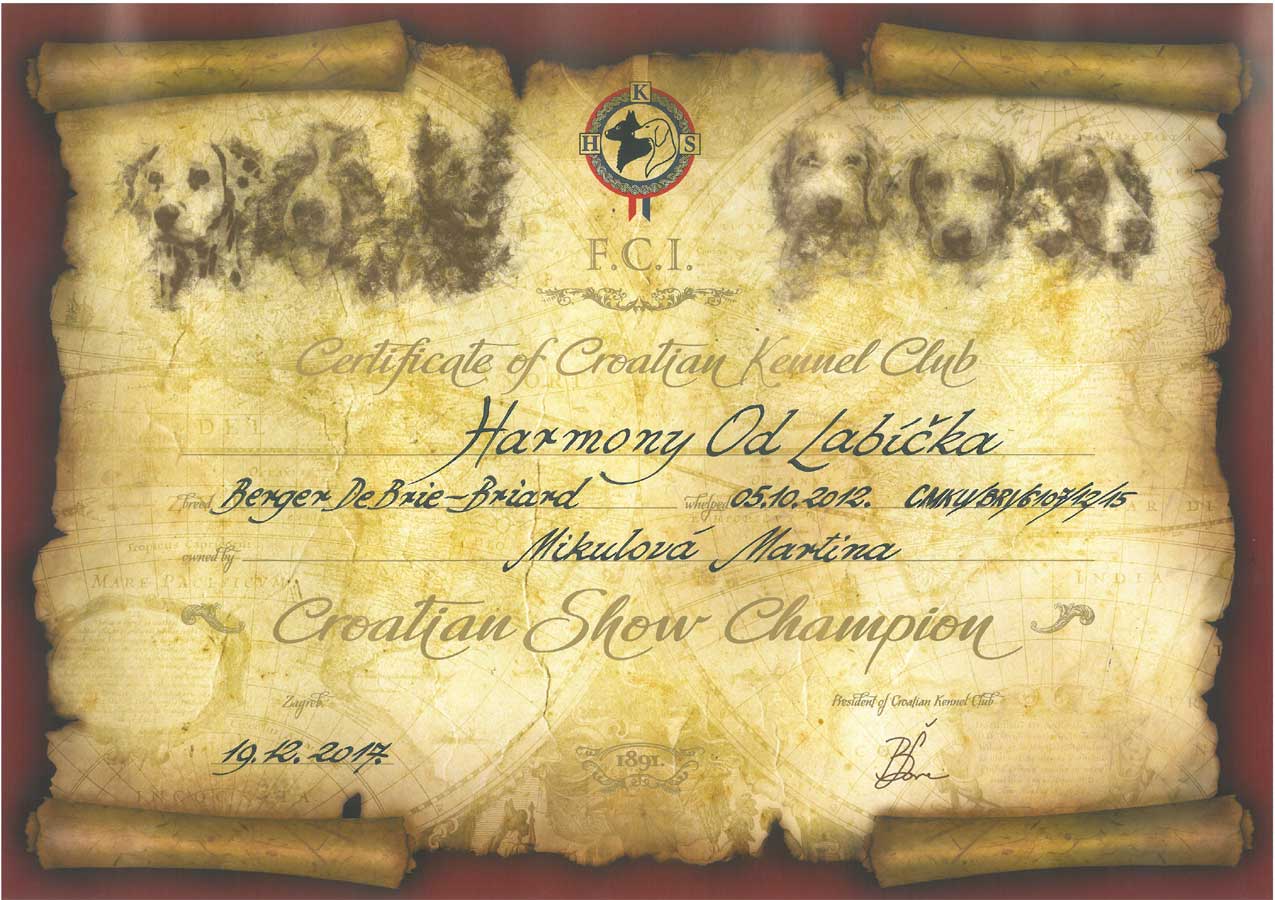 K
H S
F.C.I.
Certificate of Croatian Kennel Club
Harmony Od Labíčka
breed Berger De Brie-Briard whelped 05.10.2012. CMKU/BRI/6107/12/15
owned by Mikulová Martina
MARE PACIFICVM
INDIA
Croatian Show Champion
Zagreb, President of Croatian Kennel Club
19.12.2017.
1891.